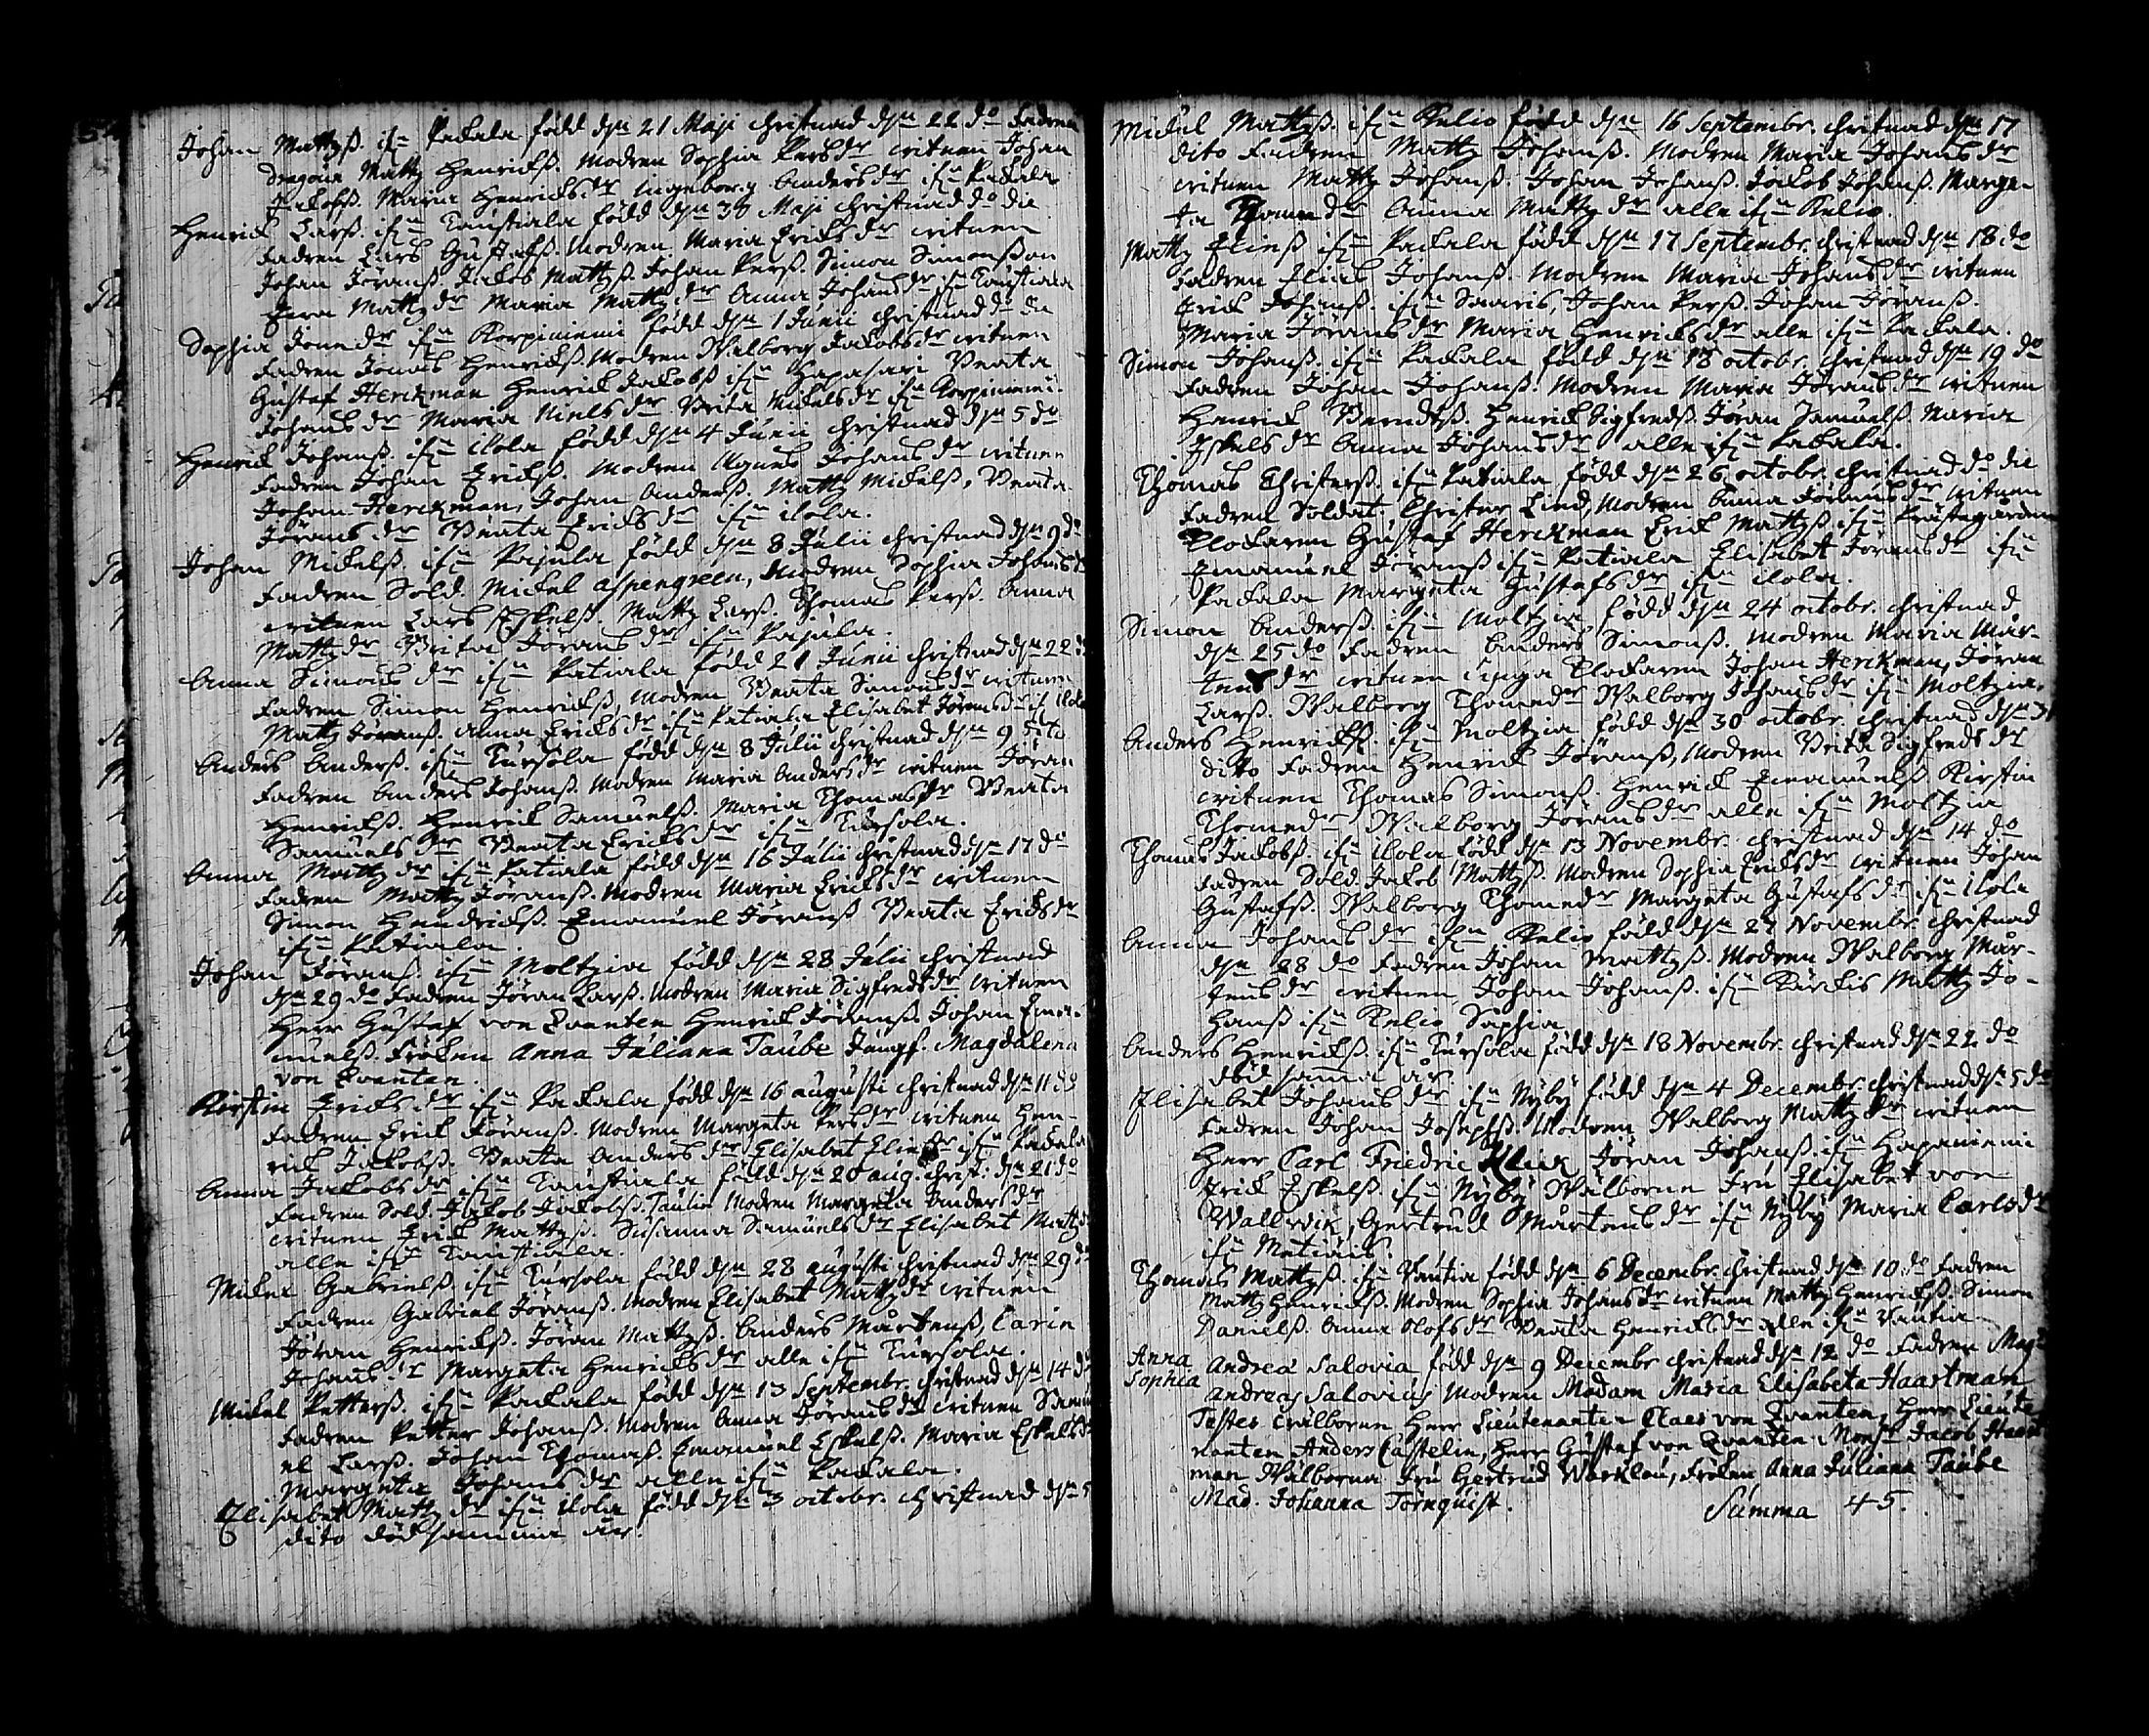 Johan Mattzß. ifrn Packala född dn 21 Maji christnad dn 22 do Fadren
Dragoun Mattz Henrichß. Modren Sophia Persdr witnen Johan
Jakobß. Maria Henricksdr Ingeborg Andersdr ifrn Packala
Henrick Larß. ifrn Taustiala född dn 30 Maji christnad do die
Fadren Lars Gustafß. Modren Maria Ericksdr witnen
Johan Jöranß. Jakob Mattzß. Johan Perß. Simon Simonsson
Mattzdr Maria Mattzdr Anna Johansdr ifrn Taustiala
Sophia Jonædr ifrn Korpiniemi född dn 1 Junii christnad do die
Fadren Jonas Henrickß. Modren Walborg Jakobsdr witnen
Gustaf Herckman Henrick Jakobß ifrn Hapasari Beata
Johansdr Maria Nielsdr Brita Mickelsdr ifrn Korpiniemi.
Henrick Johanß. ifrn Ilola född dn 4 Junii christnad dn 5 do
Fadren Johan Erickß. Modren Agnes Johansdr witnen
Johan Herckman, Johan Anderß. Mattz Mickelß, Beata
Jöransdr Beata Ericksdr ifrn Ilola.
Johan Mickelß. ifrn Papula född dn 8 Julii christnad dn 9 do
Fadren Sold. Mickel Aspengreen, Modren Sophia Johansdr
witnen Lars Eskelß. Mattz Larß. Thomas Perß. Anna
Mattzdr Brita Jöransdr ifrn Papula.
Anna Simonsdr ifrn Patiala född 21 Junii christnad dn 22 do
Fadren Simon Henrickß, Modren Beata Simonsdr witnen
Mattz Jöranß. Anna Ericksdr ifrn Patiala Elisabet Jöransdr if Ilola
Anders Anderß. ifrn Tursola född dn 8 Julii christnad dn 9 dito
Fadren Anders Johanß. Modren Maria Andersdr witnen Jöran
Henrickß. Henrick Samuelß. Maria Thomasdr Beata
Samuelsdr Beata Ericksdr ifrn Tursola.
Anna Mattzdr ifrn Patiala född dn 16 Julii christnad dn 17 do
Fadren Mattz Jöranß. Modren Maria Ericksdr witnen
Simon Hendrickß. Emanuel Jöranß Beata Ericksdr
ifrn Patiala.
Johan Jöranß. ifrn Moltzia född dn 28 Julii christnad
dn 29 do Fadren Jöran Larß. Modren Maria Sigfredsdr witnen
Herr Gustaf von Qvanten Henrick Jöranß. Johan Ema-
nuelß. Fröken Anna Juliana Taube Jungf. Magdalena
von Qvanten.
Kirstin Ericksdr ifrn Packala född dn 16 augusti christnad dn 11 do
Fadren Erick Jöranß. Modren Margeta Persdr witnen Hen-
rick Jakobß. Beata Andersdr Elisabet Eliædr ifrn Packala
Anna Jakobsdr ifrn Taustiala född dn 20 aug. christ: dn 21 do
Fadren Sold. Jakob Jakobß. Taulin Modren Margeta Andersdr
witnen Erick Mattzß. Susanna Samuelsdr Elisabet Mattzdr
alle ifrn Taustiala.
Mickel Gabrielß. ifrn Tursola född dn 28 augusti christnad dn 29 do
Fadren Gabriel Jöranß. Modren Elisabet Mattzdr witnen
Jöran Henrickß. Jöran Mattzß. Anders Mårtenß Carin
Johansdr Margeta Henricksdr alle ifrn Tursola.
Mickel Petterß. ifrn Packala född dn 13 Septembr. christnad dn 14 do
Fadren Petter Johanß. Modren Anna Jöransdr witnen Samu
el Larß. Johan Thomaß. Emanuel Eskelß. Maria Eskelsdr
Margeta Johansdr alle ifrn Packala.
Elisabet Mattzdr ifrn Ilola född dn 3 octobr. christnad dn 5
dito död samma år.
Mickel Mattzß. ifrn Kelio född dn 16 Septembr. christnad dn 17
dito Fadren Mattz Johanß. Modren Maria Johansdr
witnen Mattz Johanß. Johan Johanß. Jakob Johanß. Marge-
ta Thomædr Anna Mattzdr alle ifrn Kelio.
Mattz Eliæß ifrn Packala född dn 17 Septembr. christnad dn 18 do
Fadren Elias Johanß. Modren Maria Johansdr witnen
Erick Johanß. ifrn Saaris, Johan Perß. Johan Jöranß.
Maria Jöransdr Maria Henricksdr alle ifrn Packala.
Simon Johanß. ifrn Packala född dn 18 octobr. christnad dn 19 do
Fadren Johan Johanß. Modren Maria Jöransdr witnen
Henrick Berndtß. Henrick Sigfredß. Jöran Samuelß. Maria
Eskelsdr Anna Johansdr alle ifrn Packala.
Thomas Christerß. ifrn Patiala född dn 26 octobr. christnad do die
Fadren Soldat Christer Lind, Modren Anna Jöransdr witnen
Klockaren Gustaf Herckman Erick Mattzß. ifrn Prästegården
Emanuel Jöranß ifrn Patiala Elisabet Jöransdr ifrn
Packala Margeta Gustafsdr ifrn Ilola.
Simon Anderß. ifrn Moltzia, född dn 24 octobr. christnad
dn 25 do Fadren Anders Simonß. Modren Maria Mår-
tensdr witnen unga Klockaren Johan Herckman, Jöran
Larß. Walborg Thomædr Walborg Johansdr ifrn Moltzia.
Anders Henrickß. ifrn Moltzia född dn 30 octobr. christnad dn 31
dito Fadren Henrick Jöranß, Modren Brita Sigfredsdr
witnen Thomas Simonß. Henrick Emanuelß Kirstin
Thomædr Walborg Jöransdr alle ifrn Moltzia
Thomas Jakobß ifrn Ilola född dn 13 Novembr. christnad dn 14 do
Fadren Sold. Jakob Mattzß. Modren Sophia Ericksdr witnen Johan
Gustafß. Walborg Thomædr Margeta Gustafsdr ifrn Ilola
Anna Johansdr ifrn Kelio född dn 27 Novembr. christnad
dn 28 do Fadren Johan Mattzß. Modren Walborg Mår-
tensdr witnen Johan Johanß. ifrn Mattz Jo-
hanß ifrn Kelio Sophia
Anders Henrickß. ifrn Tursola född dn 18 Novembr. christnad dn 22 do
död samma år.
Elisabet Johansdr ifrn Nyby född dn 4 Decembr. christnad dn 5 do
Fadren Johan Josephß. Modren Walborg Mattzdr witnen
Herr Carl Friedric Jöran Johanß. ifrn Hapaniemi
Erick Eskelß. ifrn Nyby Wälborne Fru Elisabet von
Gertrud Mårtensdr ifrn Nyby Maria Carlsdr
ifrn
Thomas Mattzß. ifrn Vautia född dn 6 Decembr. christnad dn 10 do Fadren
Mattz Henrickß. Modren Sophia Johansdr witnen Mattz Henrickß. Simon
Danielß. Anna Olofsdr Beata Henricksdr alle ifrn Vautia.
Anna Andreæ Salovia född dn 9 Decembr christnad dn 12 do Fadren Mag:
Sophia Andreas Salovius Modren Madam Maria Elisabeta Haartman
Testes Wälborne Herr Lieutenanten Claes von Qvanten, Herr Lieute
nanten Anders Castelin, Herr Gustaf von Qvanten Monsr Jacob Haart
man Wälborna Fru Gertrud Fröken Anna Juliana Taube
Mad. Johanna Törnquist.
Summa 45.